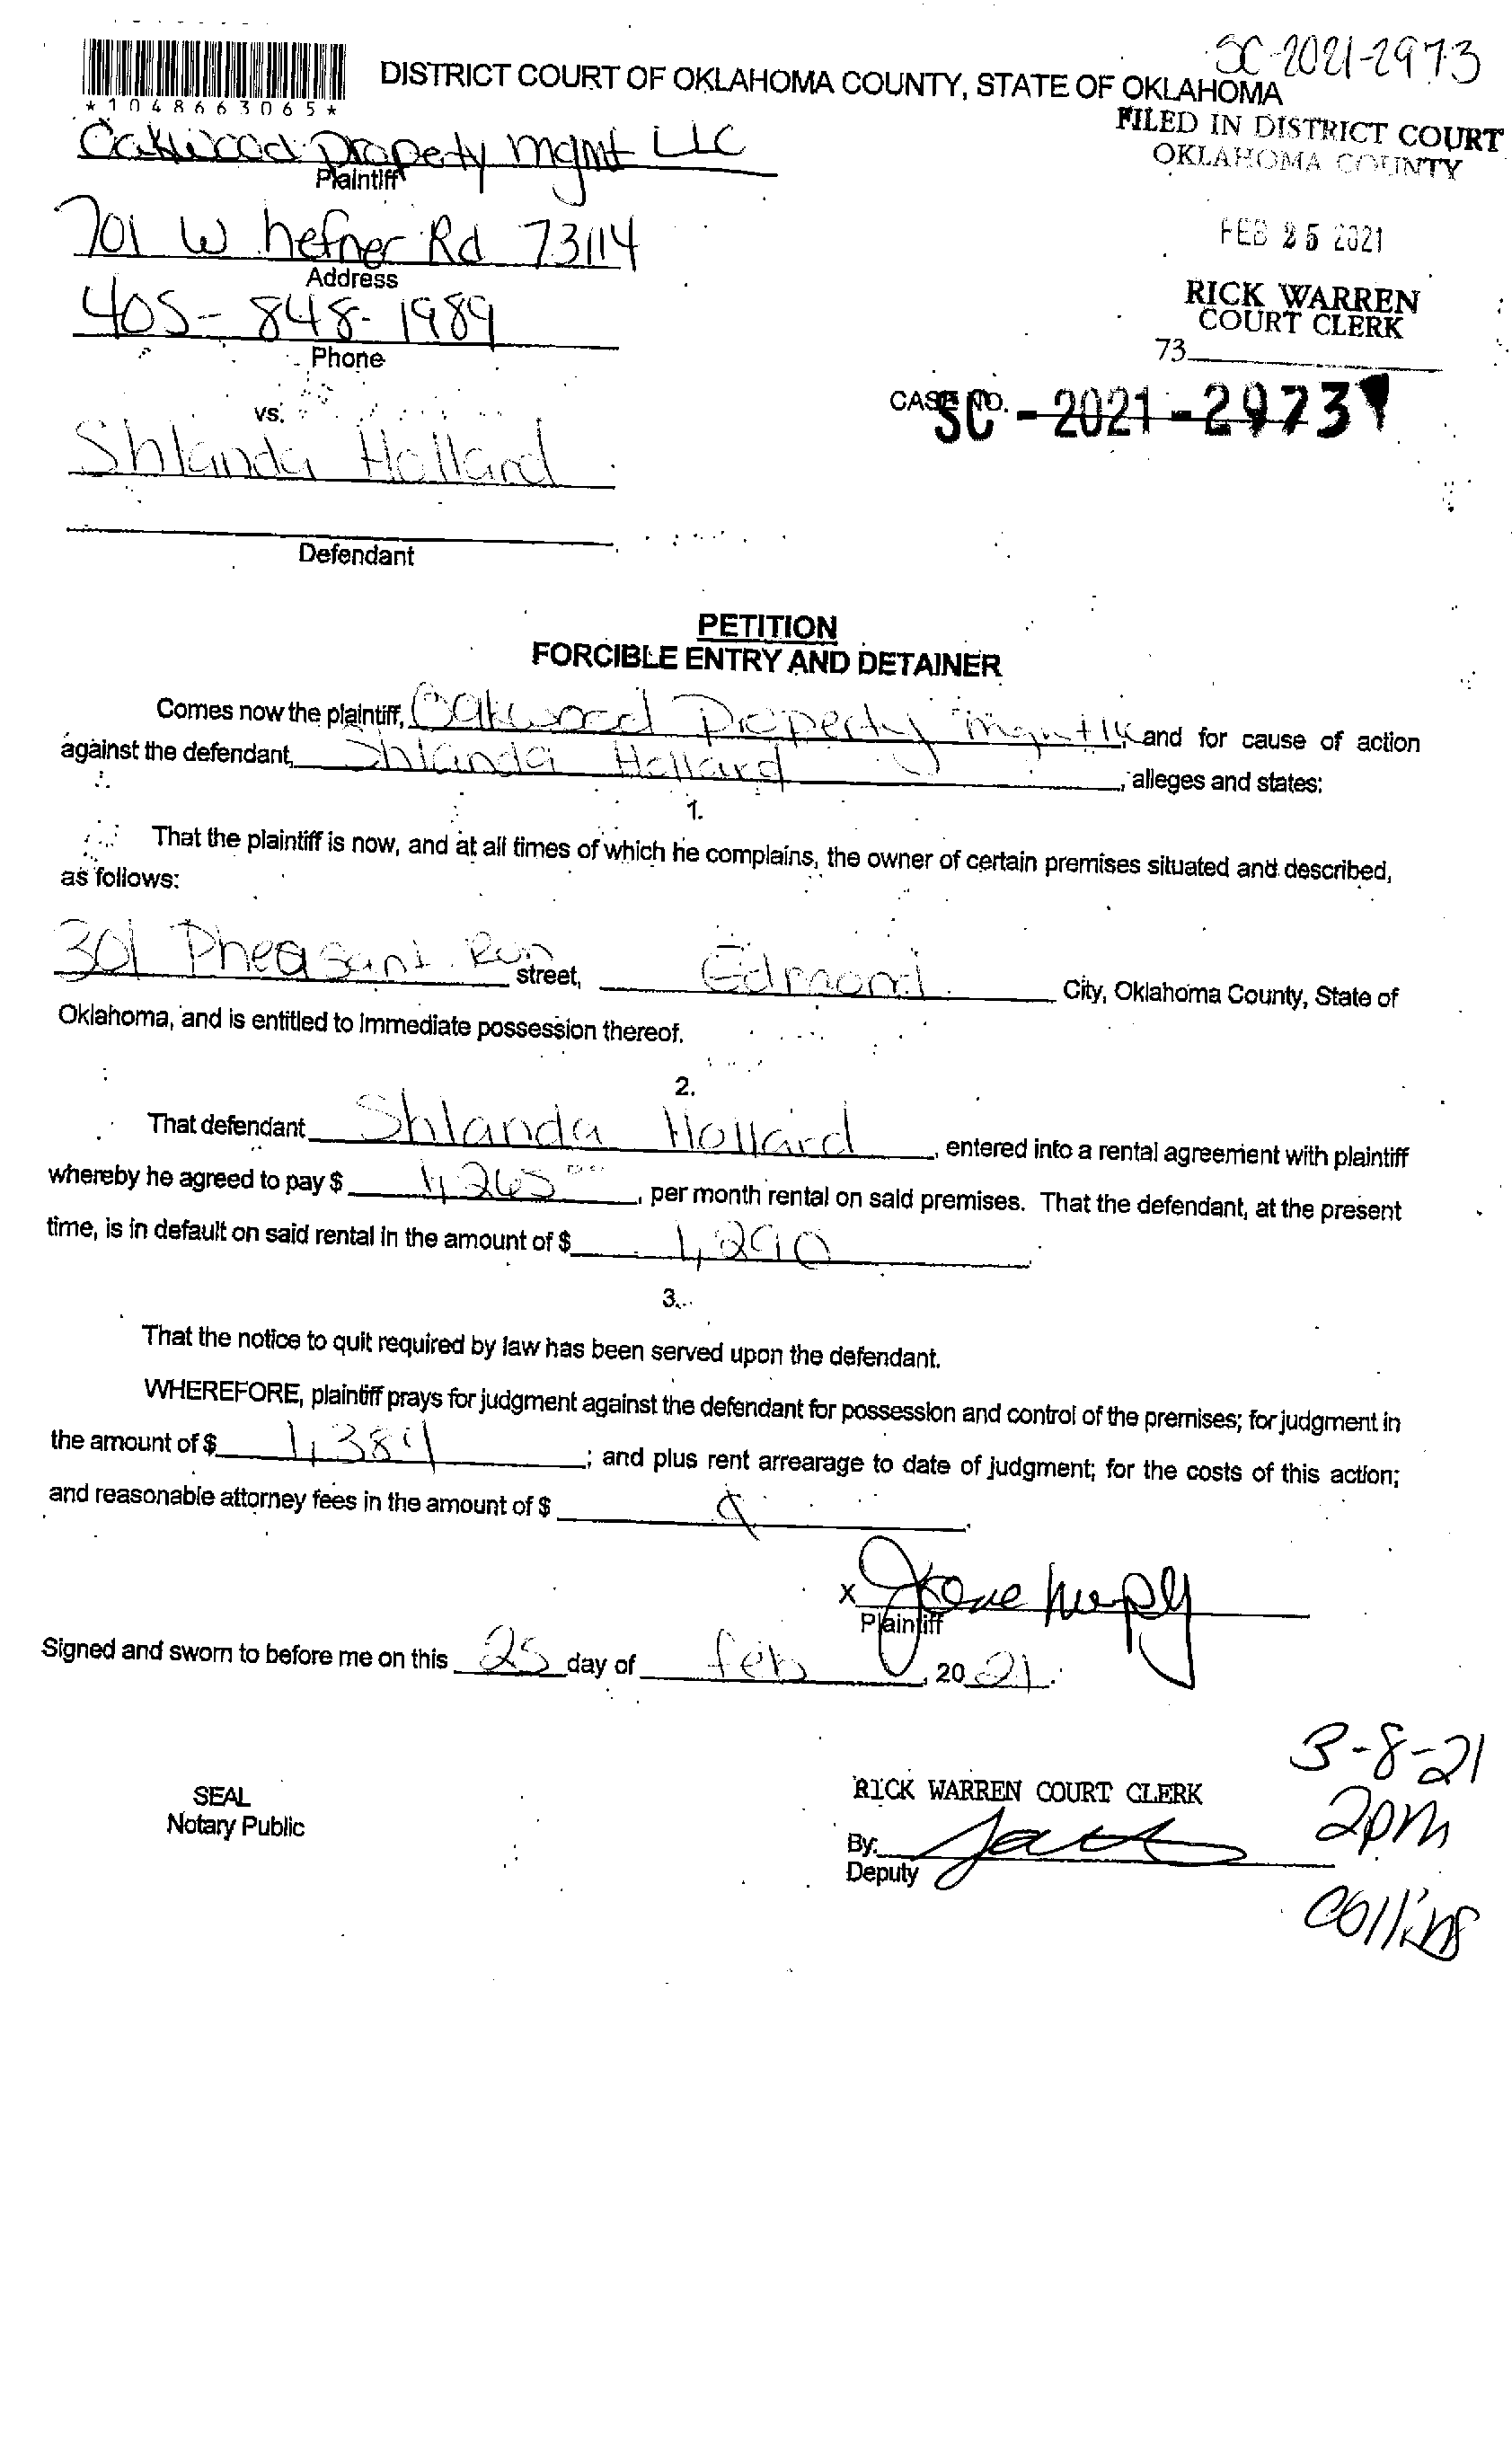 SC-2021-2973
DISTRICT COURT OF OKLAHOMA COUNTY, STATE OF OKLAHOMA
*1048663065*
FILED IN DISTRICT COURT
OKLAHOMA COUNTY
Oakwood Property mgmt LLC
Plaintiff
701 W hefner Rd 73114
Address
FEB 25 2021
405-848-1989
Phone
RICK WARREN
COURT CLERK
73
CASE NO.
SC-2021-2973
vs.
Shlanda Hollard
Defendant
PETITION
FORCIBLE ENTRY AND DETAINER
Comes now the plaintiff, Oakwood Property mgmt llc, and for cause of action
against the defendant, Shlanda Hollard, alleges and states:
1.
That the plaintiff is now, and at all times of which he complains, the owner of certain premises situated and described,
as follows:
301 Pheasant Run street, Edmond City, Oklahoma County, State of
Oklahoma, and is entitled to immediate possession thereof.
2.
That defendant Shlanda Hollard, entered into a rental agreement with plaintiff
whereby he agreed to pay $ 1,265 00, per month rental on said premises. That the defendant, at the present
time, is in default on said rental in the amount of $ 1,290.
3.
That the notice to quit required by law has been served upon the defendant.
WHEREFORE, plaintiff prays for judgment against the defendant for possession and control of the premises; for judgment in
the amount of $ 1,389; and plus rent arrearage to date of judgment; for the costs of this action;
and reasonable attorney fees in the amount of $
X
Plaintiff
Signed and sworn to before me on this 25 day of feb, 2021.
3-8-21
2pm
Collins
SEAL
Notary Public
RICK WARREN COURT CLERK
By:
Deputy